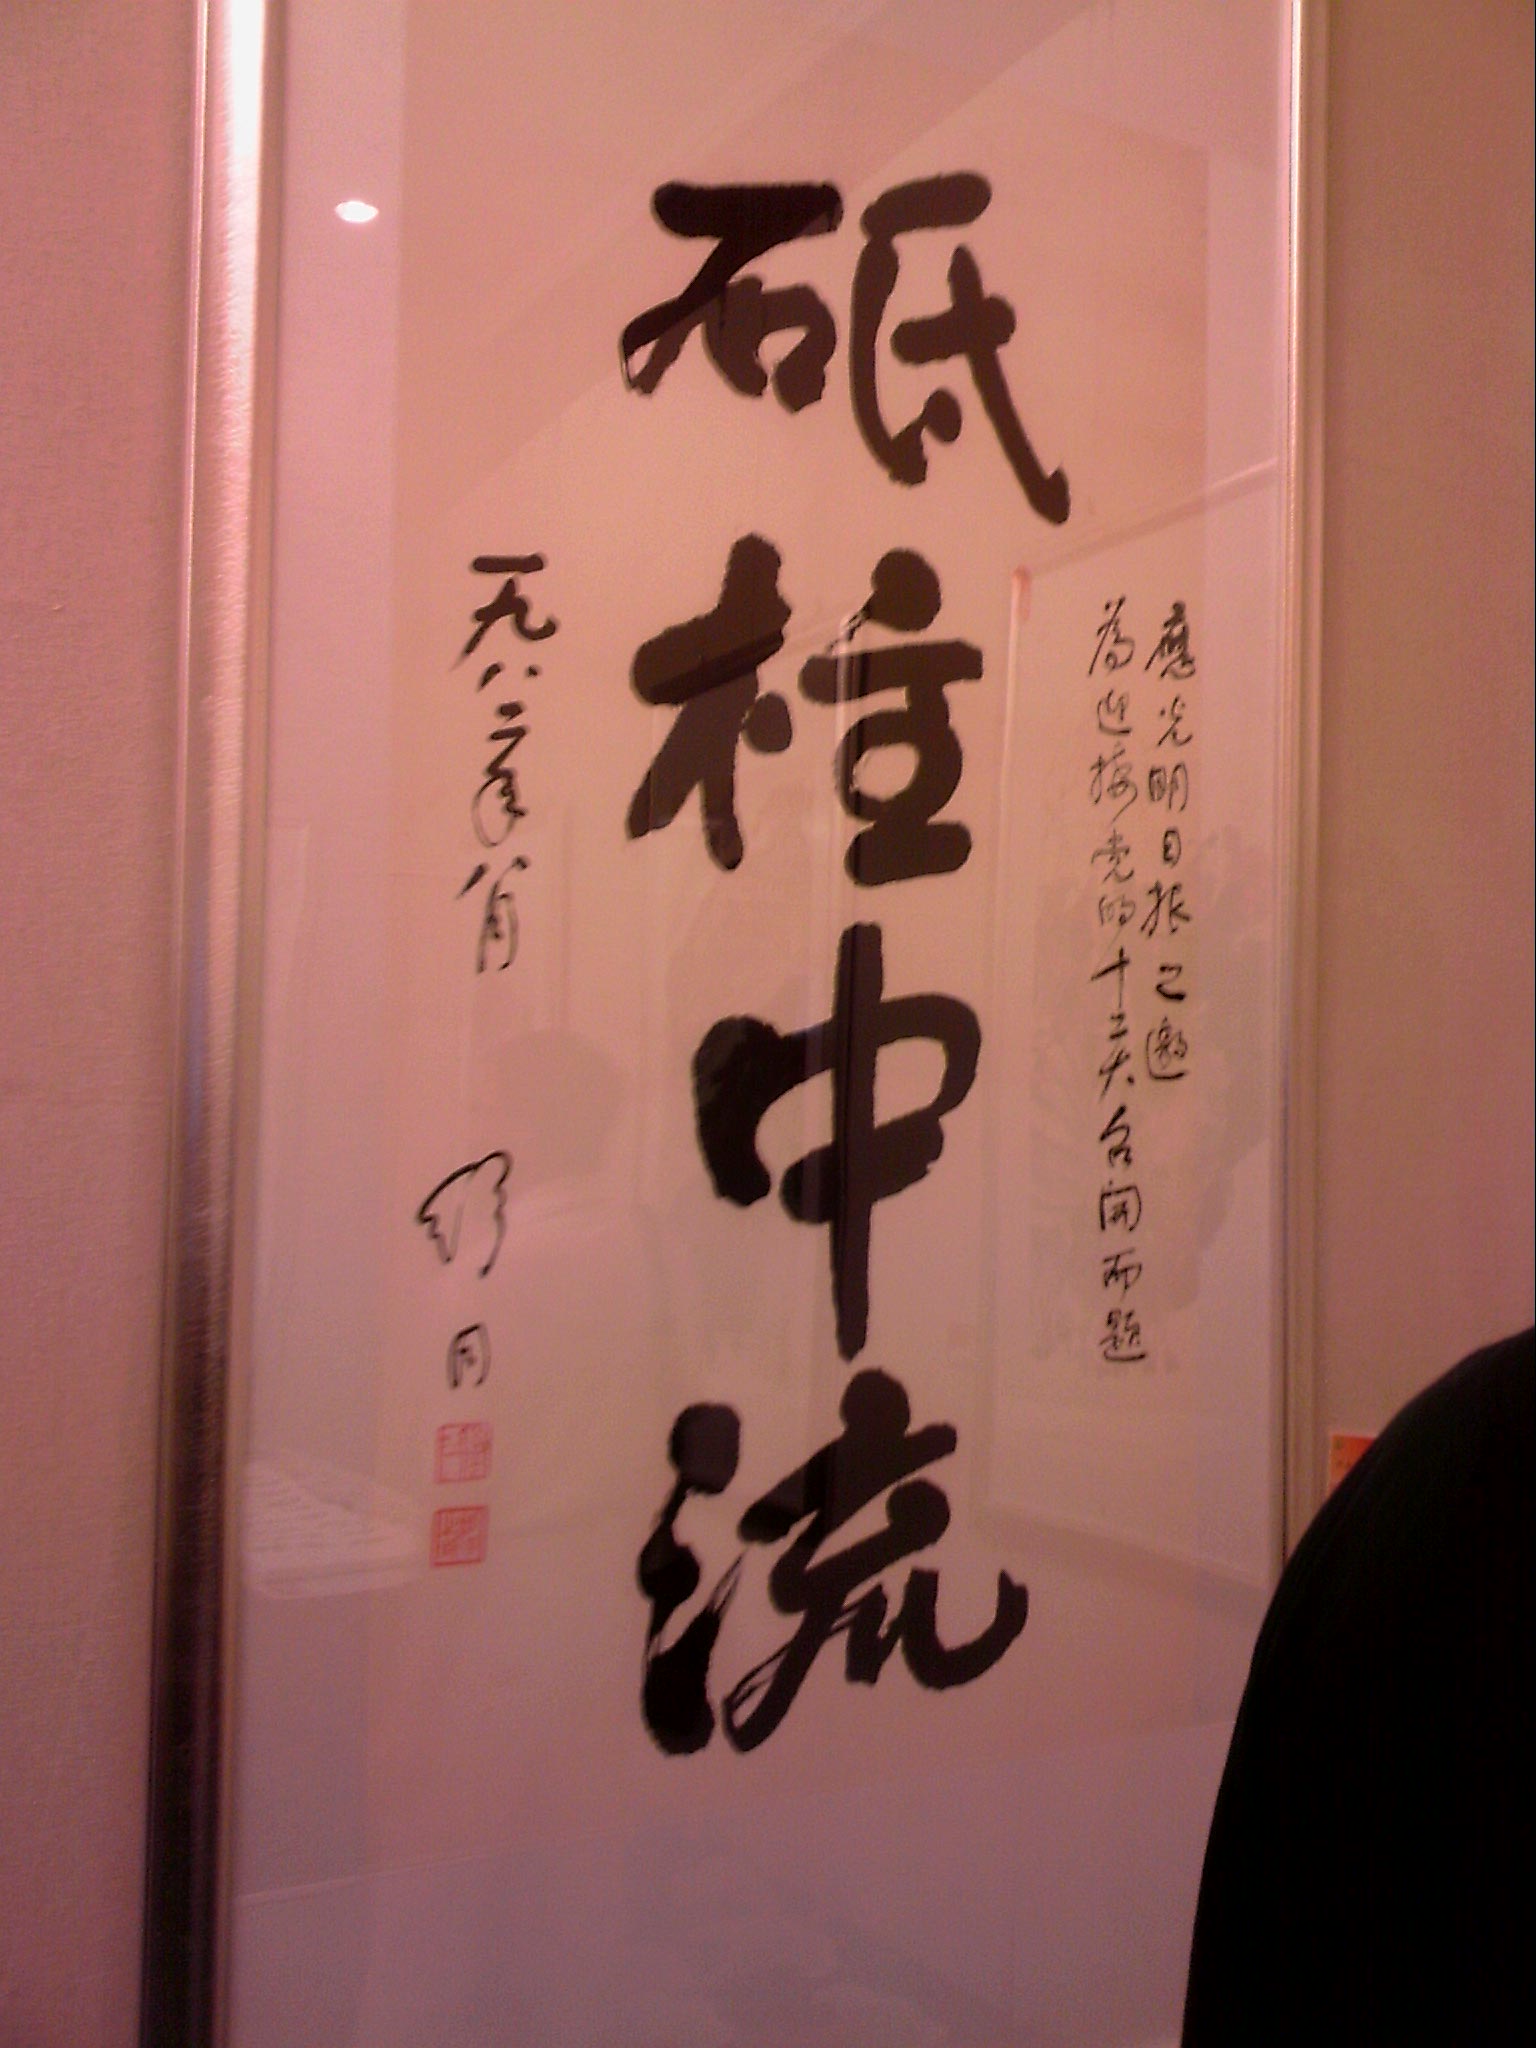 應光明日报之邀
為迎接党的十二大召開而题
砥柱中流
一九八二年八月
舒同